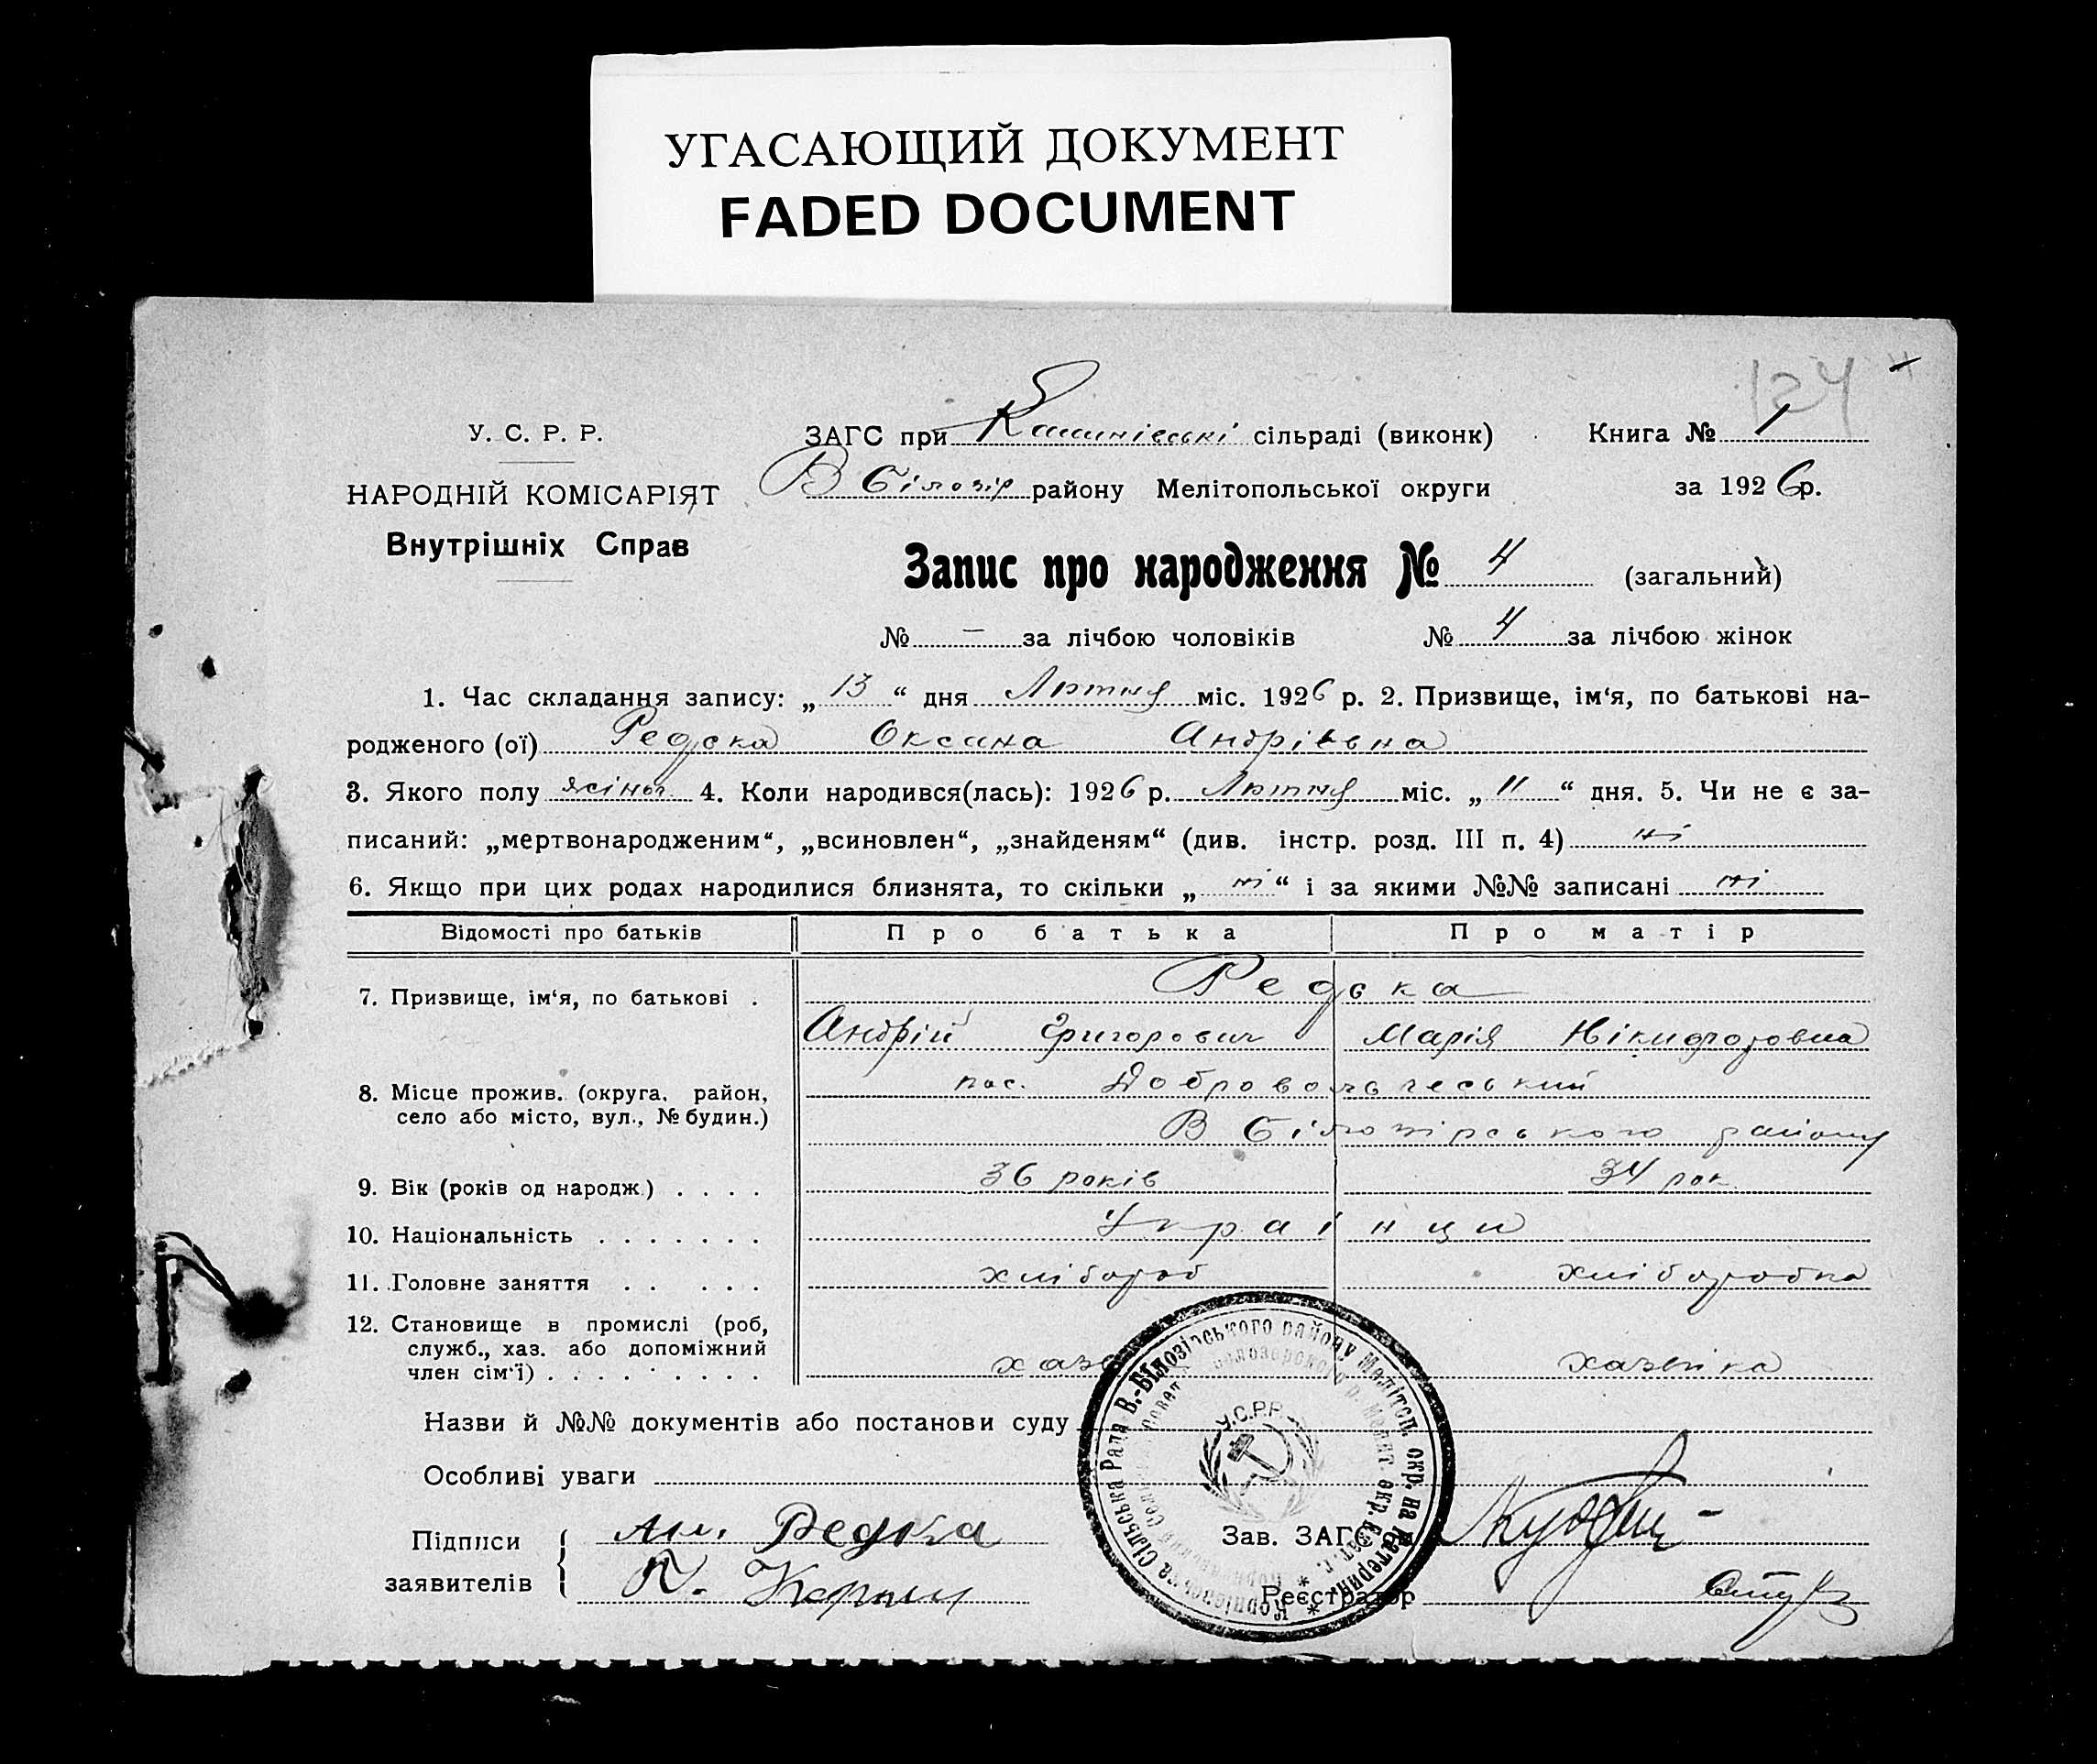 УГАСАЮЩИЙ ДОКУМЕНТ
FADED DOCUMENT
124
У. С. Р. Р.
НАРОДНІЙ КОМІСАРІЯТ
Внутрішніх Справ
ЗАГС при сільраді (виконк) Книга № 1
В Білозір району Мелітопольської округи за 1926р.
Запис про народження № 4 (загальний)
№ – за лічбою чоловіків № 4 за лічбою жінок
1. Час складання запису: „13“ дня Лютня міс. 1926 р. 2. Призвище, ім‘я, по батькові на-
родженого (ої) Редька Оксана Андрієвна
3. Якого полу жіноч. 4. Коли народився(лась): 1926 р. Лютня міс. „11“ дня. 5. Чи не є за-
писаний: „мертвонародженим“, „всиновлен“, „знайденям“ (див. інстр. розд. III п. 4) ні
6. Якщо при цих родах народилися близнята, то скільки „ні“ і за якими №№ записані ні
Відомості про батьків Про батька Про матір
7. Призвище, ім‘я, по батькові . Редька
Андрій Григорович Марія Нікифоровна
8. Місце прожив. (округа, район,
село або місто, вул., № будин.)
пос.
В Білозірського району
9. Вік (років од народж.) . . . . 36 років 34 рок.
10. Національність . . . . . . . Українци
11. Головне заняття . . . . . хлібороб хліборобка
12. Становище в промислі (роб,
служб., хаз. або допоміжний
член сім‘ї) . . . . . . . . . хазяйка
Назви й №№ документів або постанови суду
Особливі уваги
Підписи
заявителів
Ан. Редька
Зав. ЗАГС
Реєстратор
Сільська Рада В.-Білозірського району МеліТоп. окр. на Катерин.
У.С.Р.Р.